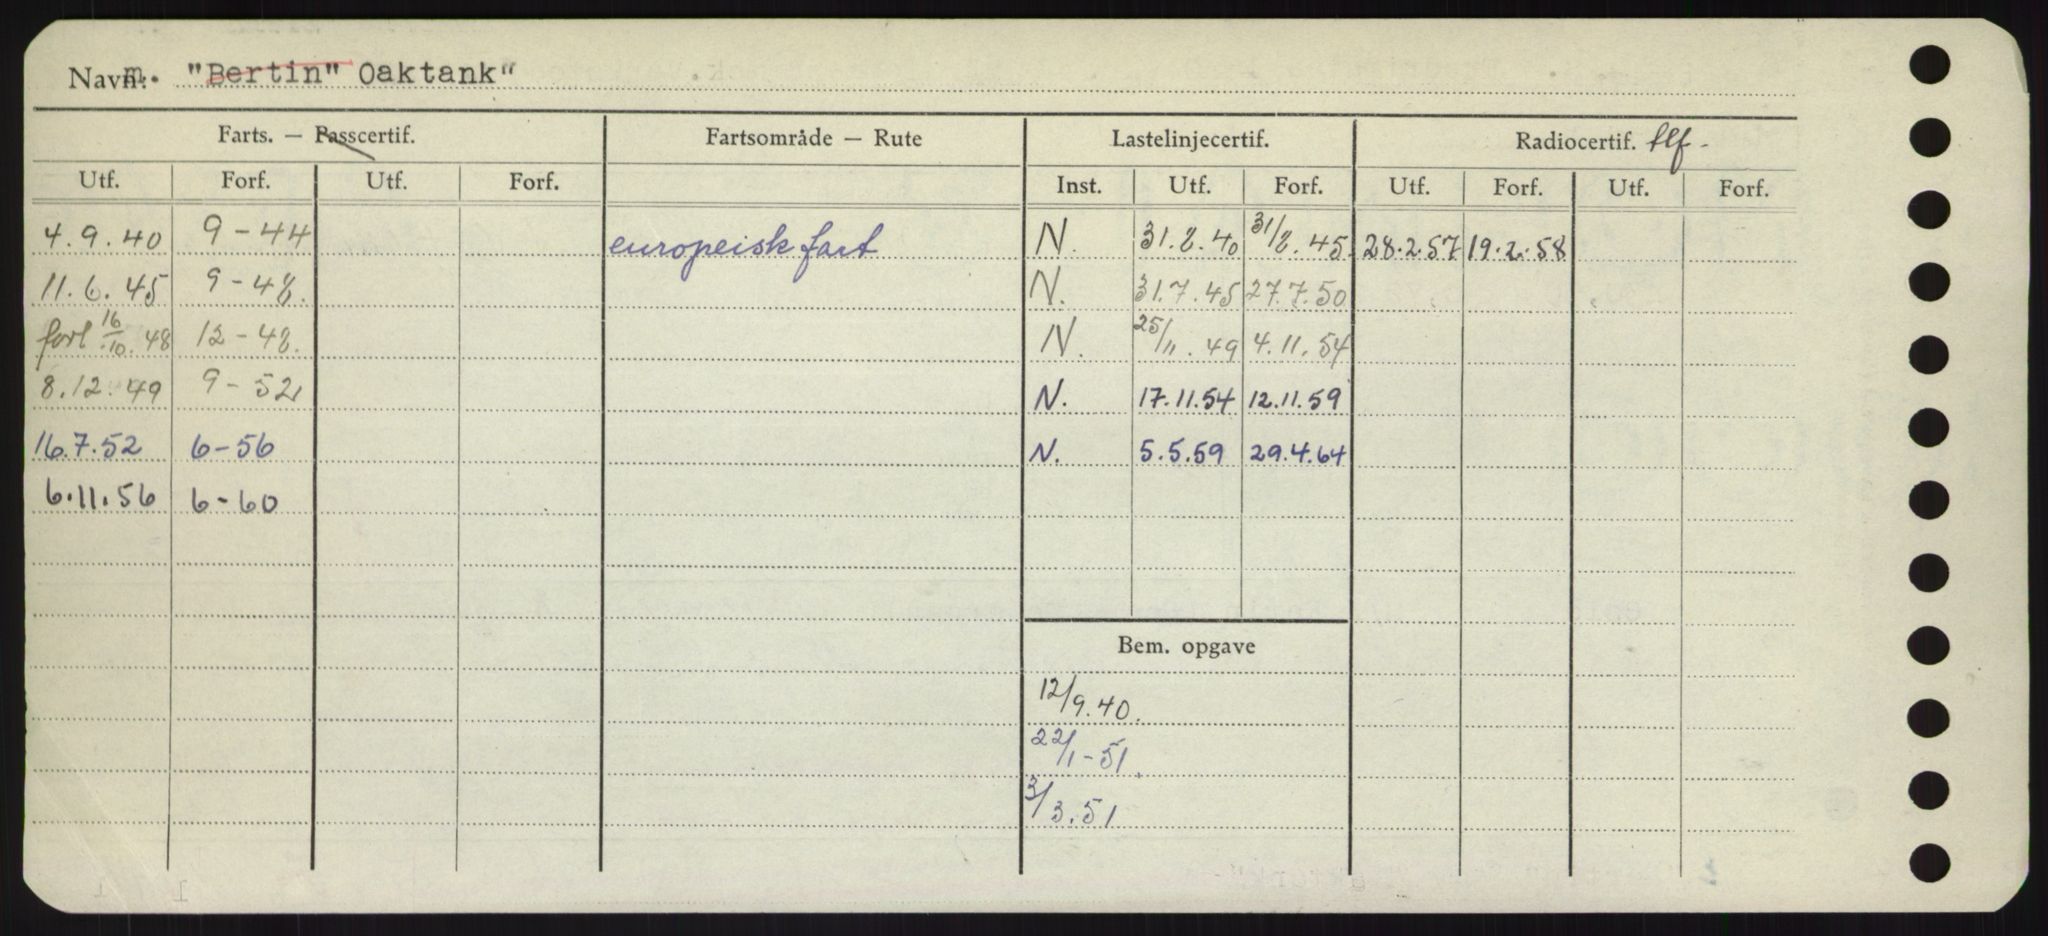 Navn: m. "Bertin" Oaktank"
Farts. — Passcertif. Fartsområde — Rute Lastelinjecertif. Radiocertif. tlf-
Utf. Forf. Utf. Forf. Inst. Utf. Forf. Utf. Forf. Utf. Forf.
4.9.40 9-44 europeisk fart N. 31.8.40 31/8.45 28.2.57 19.2.58
11.6.45 9-48. N. 31.7.45 27.7.50
forl 16/10.48 12-48. N. 25/11.49 4.11.54
8.12.49 9-52 N. 17.11.54 12.11.59
16.7.52 6-56 N. 5.5.59 29.4.64
6.11.56 6-60
Bem. opgave
12/9.40.
22/1-51.
3/3.51